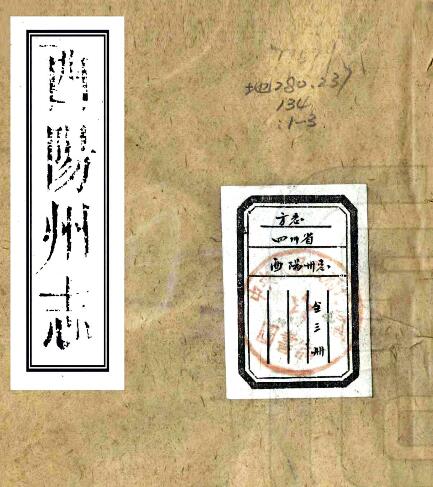 酉陽州志
地280.237
134
:1-3
方志
四川省
酉陽州志
全三册